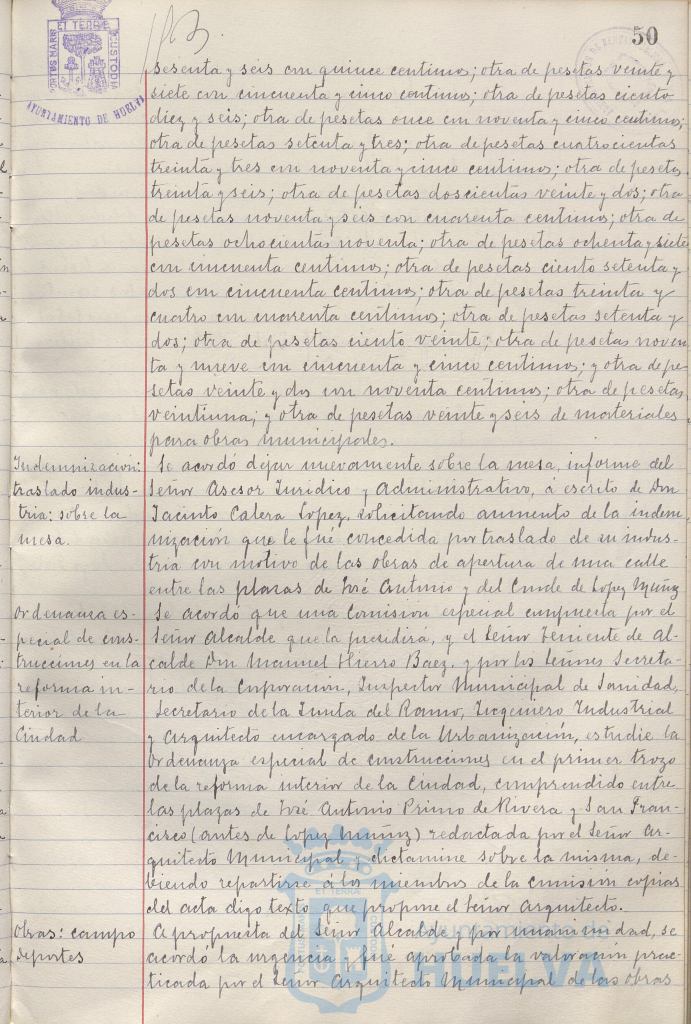 50
PORTUS MARIS ET TERRE CUSTODIA
AYUNTAMIENTO DE HUELVA
sesenta y seis con quince centimos; otra de pesetas veinte y
siete con cincuenta y cinco centimos; otra de pesetas ciento
diez y seis; otra de pesetas once con noventa y cinco centimos;
otra de pesetas setenta y tres; otra de pesetas cuatrocientas
treinta y tres con noventa y cinco centimos; otra de pesetas
treinta y seis; otra de pesetas doscientas veinte y dos; otra
de pesetas noventa y seis con cuarenta centimos; otra de
pesetas ochocientas noventa; otra de pesetas ochenta y siete
con cincuenta centimos; otra de pesetas ciento setenta y
dos con cincuenta centimos; otra de pesetas treinta y
cuatro con cuarenta centimos; otra de pesetas setenta y
dos; otra de pesetas ciento veinte; otra de pesetas noven
ta y nueve con cincuenta y cinco centimos; y otra de pe-
setas veinte y dos con noventa centimos; otra de pesetas
veintiuna; y otra de pesetas veinte y seis de materiales
para obras municipales.
Indemnización:
traslado indus-
tria: sobre la
mesa.
Se acordó dejar nuevamente sobre la mesa, informe del
Señor Asesor Juridico y Administrativo, á escrito de Don
Jacinto Calera Lopez, solicitando aumento de la indem-
nización que le fué concedida por traslado de su indus-
tria con motivo de las obras de apertura de una calle
entre las plazas de José Antonio y del Conde de Lopez Muñoz
Ordenanza es-
pecial de cons-
trucciones en la
reforma in-
terior de la
Ciudad
Se acordó que una Comision especial compuesta por el
Señor Alcalde que la presidirá, y el Señor Teniente de Al-
calde Don Manuel Hierro Baez, y por los Señores Secreta-
rio de la Corporación, Inspector Municipal de Sanidad,
Secretario de la Junta del Ramo, Ingeniero Industrial
y Arquitecto encargado de la Urbanización, estudie la
Ordenanza especial de construcciones en el primer trozo
de la reforma interior de la Ciudad, comprendido entre
las plazas de José Antonio Primo de Rivera y San Fran-
cisco (antes de Lopez Muñoz) redactada por el Señor Ar-
quitecto Municipal y dictamine sobre la misma, de-
biendo repartirse á los miembros de la comisión copias
del acta digo texto que propone el Señor Arquitecto.
Obras: campo
deportes
A propuesta del Señor Alcalde y por unanimidad, se
acordó la urgencia y fué aprobada la valoración prac-
ticada por el Señor Arquitecto Municipal de las obras
Ayuntamiento de
HUELVA